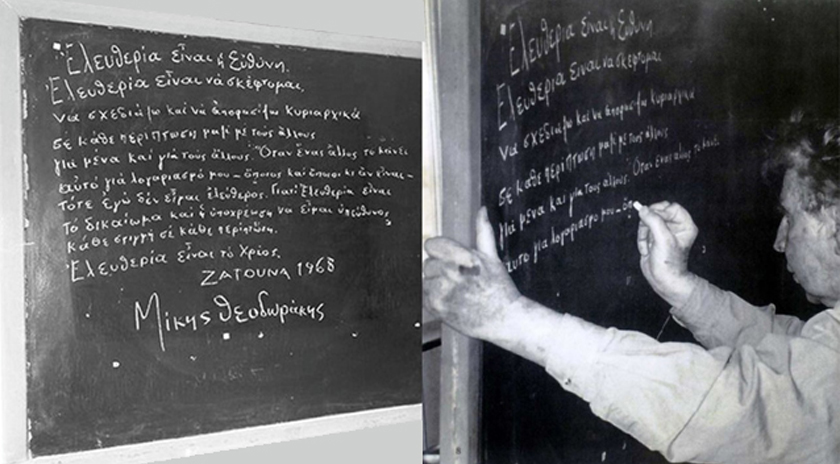 Ἐλευθερία εἶναι ἡ Εὐθύνη.
Ἐλευθερία εἶναι νὰ σκέφτομαι,
νὰ σχεδιάζω καὶ νὰ ἀποφασίζω κυριαρχικά
σὲ κάθε περίπτωση μαζὶ μὲ τοὺς ἄλλους
γιὰ μένα καὶ γιὰ τοὺς ἄλλους. Ὅταν ἕνας ἄλλος τὸ κάνει
αὐτὸ γιὰ λογαριασμό μου – ὅποιος καὶ ὅπως κι ἂν εἶναι –
τότε ἐγὼ δὲν εἶμαι ἐλεύθερος. Γιατὶ Ἐλευθερία εἶναι
τὸ δικαίωμα καὶ ἡ ὑποχρέωση νὰ εἶμαι ὑπεύθυνος
κάθε στιγμὴ σὲ κάθε περίπτωση.
Ἐλευθερία εἶναι τὸ Χρέος.
ΖΑΤΟΥΝΑ 1968
Μίκης Θεοδωράκης
Ἐλευθερία εἶναι ἡ Εὐθύνη
Ἐλευθερία εἶναι νὰ σκέφτομαι
νὰ σχεδιάζω καὶ νὰ ἀποφασίζω κυριαρχικά
σὲ κάθε περίπτωση μαζὶ μὲ τοὺς ἄλλους
γιὰ μένα καὶ γιὰ τοὺς ἄλλους. Ὅταν ἕνας ἄλλος τὸ κάνει
αὐτὸ γιὰ λογαριασμό μου –